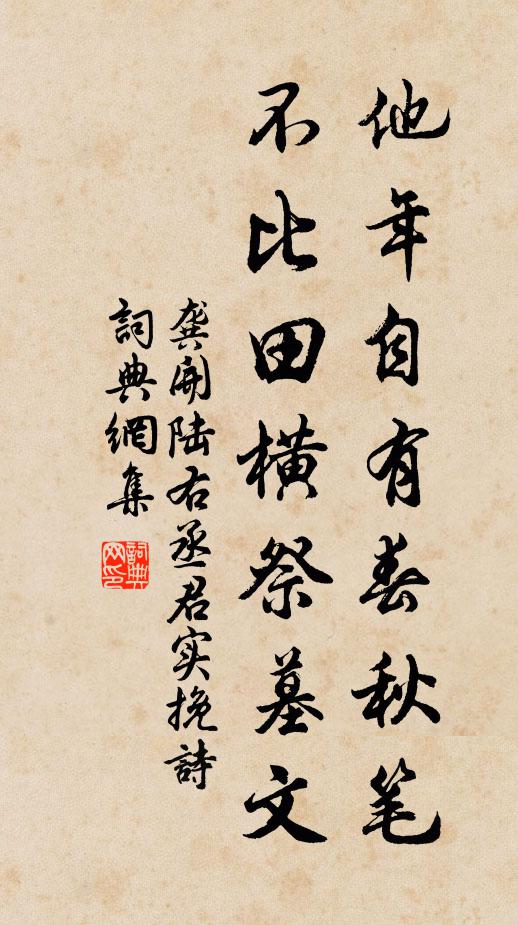 他年自有春秋笔
不比田橫祭墓文
龚開陆右丞君实挽詩
詞典網集
詞典网印